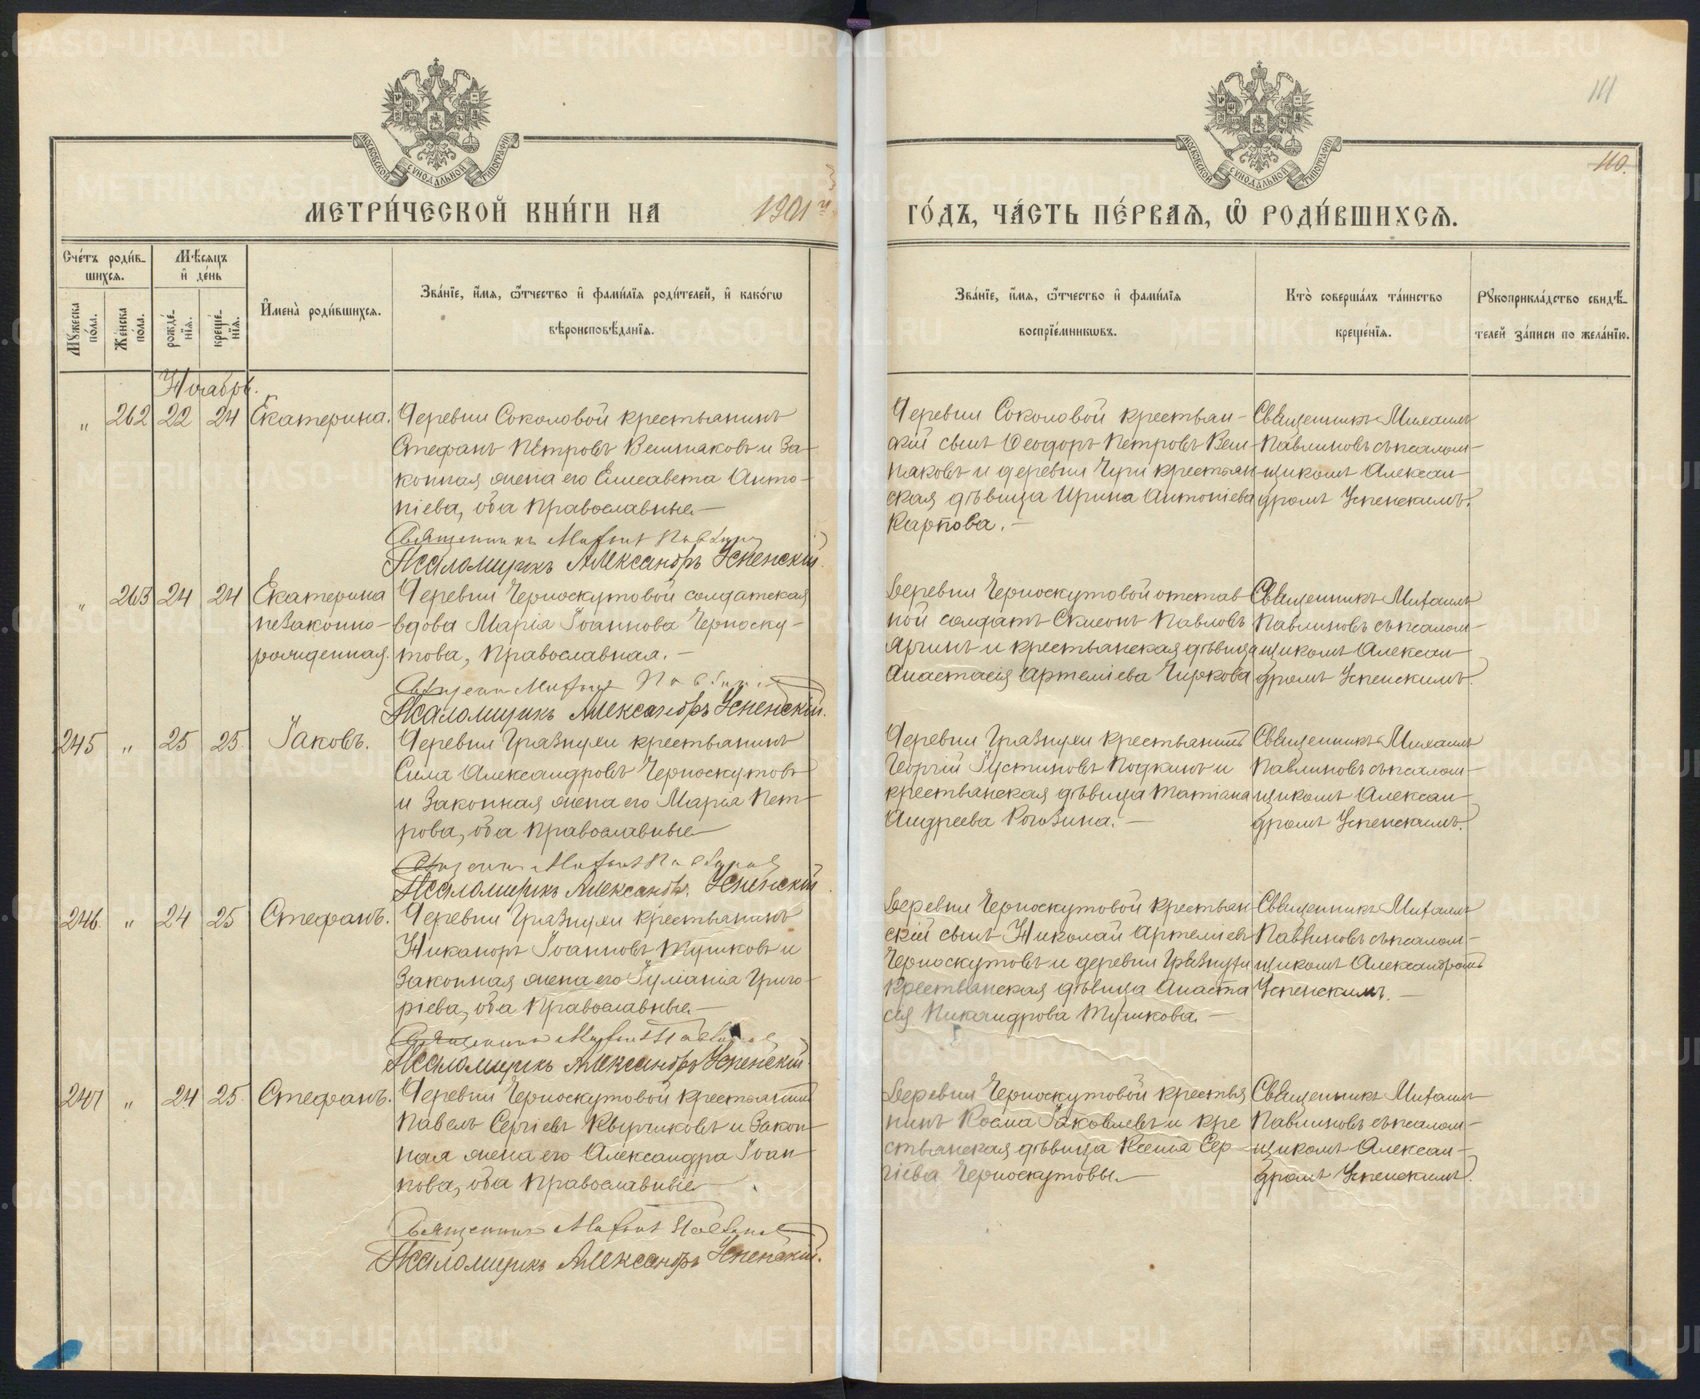 111
110.
МЕТРИ́ЧЕСКОЙ КНИ́ГИ НА 1901й ГО́ДЪ, ЧА́СТЬ ПЕ́РВАЯ, Ѽ РОДИ́ВШИХСЯ.
Сче́тъ роди́в-
шихся.
Мѣ́сяцъ
и҆ де́нь
Мꙋжеска
по́ла.
Же́нска
по́ла.
рожде́-
нїя.
креще́-
нїя.
И҆мена̀ роди́вшихся.
Зва́нїе, и҆́мя, ѻ҆́тчество и҆ фами́лїя роди́телей, и҆ како́гѡ
вѣроисповѣ́данїя.
Зва́нїе, и҆́мя, ѻ҆́тчество и҆ фами́лїя
воспрїе́мникѡвъ.
Кто̀ соверша́лъ та́инство
креще́нїя.
Рꙋкоприкла́дство свидѣ́-
телей за́писи по жела́нїю.
Ноябрь.
" 262 22 24 Екатерина.
Деревни Соколовой крестьянинъ
Стефанъ Петровъ Вешняковъ и за-
конная жена его Елисавета Анто-
ніева, оба православные.-
Священникъ Михаилъ Павлиновъ
Псаломщикъ Александръ Успенскій.
Деревни Соколовой крестьян-
скій сынъ Феодоръ Петровъ Веш-
няковъ и деревни Чупи крестьян-
ская дѣвица Ирина Антоніева
Карпова.-
Священникъ Михаилъ
Павлиновъ съ псалом-
щикомъ Алексан-
дромъ Успенскимъ.
" 263 24 24 Екатерина
незаконно-
рожденная.
Деревни Черноскутовой солдатская
вдова Марія Іоаннова Черноску-
това, православная.-
Священ Михаилъ Павлиновъ
Псаломщикъ Александръ Успенскій.
Деревни Черноскутовой отстав-
ной солдатъ Симеонъ Павловъ
и крестьянская дѣвица
Анастасія Артеміева Чиркова
Священникъ Михаилъ
Павлиновъ съ псалом-
щикомъ Алексан-
дромъ Успенскимъ.
245 " 25 25 Іаковъ.
Деревни Грязнухи крестьянинъ
Сила Александровъ Черноскутовъ
и законная жена его Марія Пет-
рова, оба православные-
Священник Михаилъ Павлиновъ
Псаломщикъ Александръ Успенскій
Деревни Грязнухи крестьянинъ
Георгій Іустиновъ и
крестьянская дѣвица Татіана
Андреева Рогозина.-
Священникъ Михаилъ
Павлиновъ съ псалом-
щикомъ Алексан-
дромъ Успенскимъ.
246 " 24 25 Стефанъ.
Деревни Грязнухи крестьянинъ
Никаноръ Іоанновъ Тушковъ и
законная жена его Іуліанія Григо-
ріева, оба православные.-
Священникъ Михаилъ Павлиновъ
Псаломщикъ Александръ Успенскій
Деревни Черноскутовой крестьян-
скій сынъ Николай Артеміевъ
Черноскутовъ и деревни Грязнухи
крестьянская дѣвица Анаста-
сія Никандрова Тушкова.-
Священникъ Михаилъ
Павлиновъ съ псалом-
щикомъ Александромъ
Успенскимъ.-
247 " 24 25 Стефанъ.
Деревни Черноскутовой крестьянинъ
Павелъ Сергіевъ и закон-
ная жена его Александра Іоан-
нова, оба православные-
Священникъ Михаилъ Павлиновъ
Псаломщикъ Александръ Успенскій.
Деревни Черноскутовой крестья-
нинъ Косма Іаковлевъ и кре-
стьянская дѣвица Ксенія Сер-
гіева Черноскутовы.-
Священникъ Михаилъ
Павлиновъ съ псалом-
щикомъ Алексан-
дромъ Успенскимъ.
METRIKI.GASO-URAL.RU